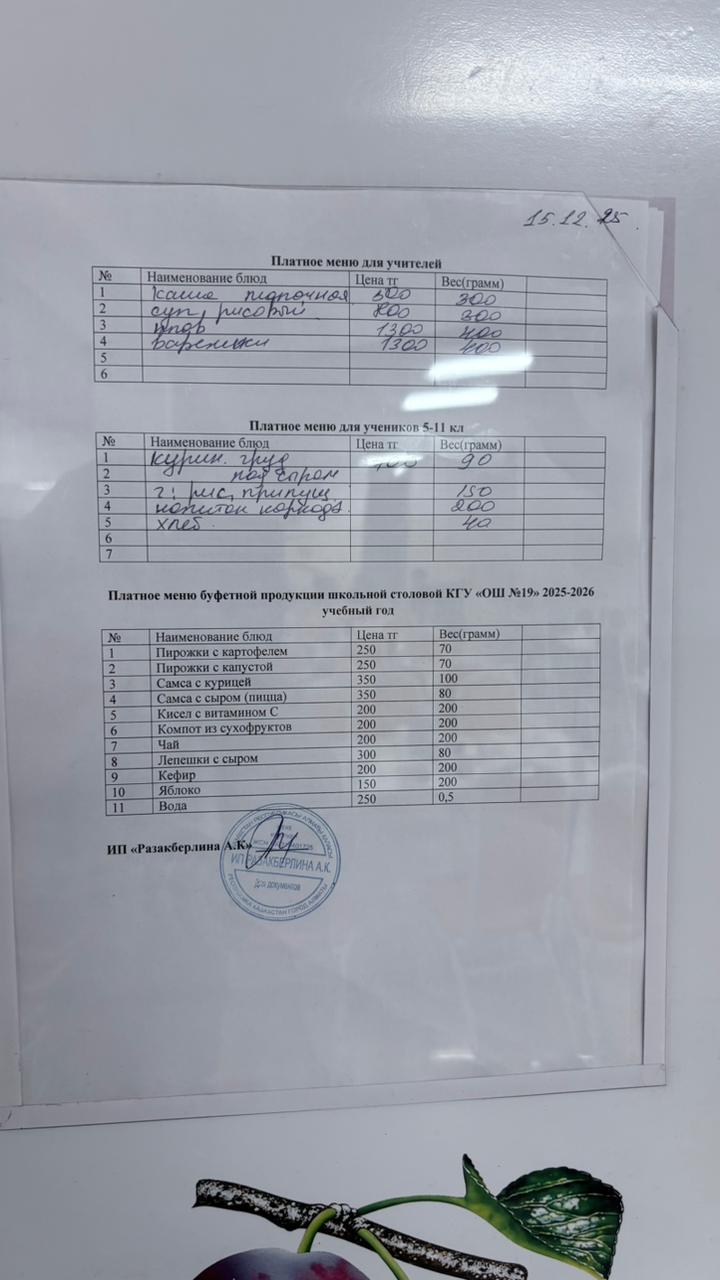 15.12.25.
Платное меню для учителей
№ Наименование блюд Цена тг Вес(грамм)
1 каша 500 300
2 суп рисовый 800 300
3 плов 1300 400
4 вареники 1300 400
5
6
Платное меню для учеников 5-11 кл
№ Наименование блюд Цена тг Вес(грамм)
1 курин. груд 90
2 под сыром
3 г: рис, припущ 150
4 напиток 200
5 хлеб. 40
6
7
Платное меню буфетной продукции школьной столовой КГУ «ОШ №19» 2025-2026
учебный год
№ Наименование блюд Цена тг Вес(грамм)
1 Пирожки с картофелем 250 70
2 Пирожки с капустой 250 70
3 Самса с курицей 350 100
4 Самса с сыром (пицца) 350 80
5 Кисел с витамином С 200 200
6 Компот из сухофруктов 200 200
7 Чай 200 200
8 Лепешки с сыром 300 80
9 Кефир 200 200
10 Яблоко 150 200
11 Вода 250 0,5
ИП «Разакберлина А.К»
ИП РАЗАКБЕРЛИНА А.К.
Для документов
РЕСПУБЛИКА КАЗАХСТАН ГОРОД АЛМАТЫ